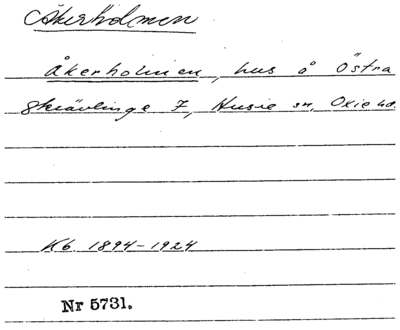 Åkerholmen
Åkerholmen, hus å Östra
Skrävlinge 7, Husie sn, Oxie hd.
Kb 1894-1924
Nr 5731.